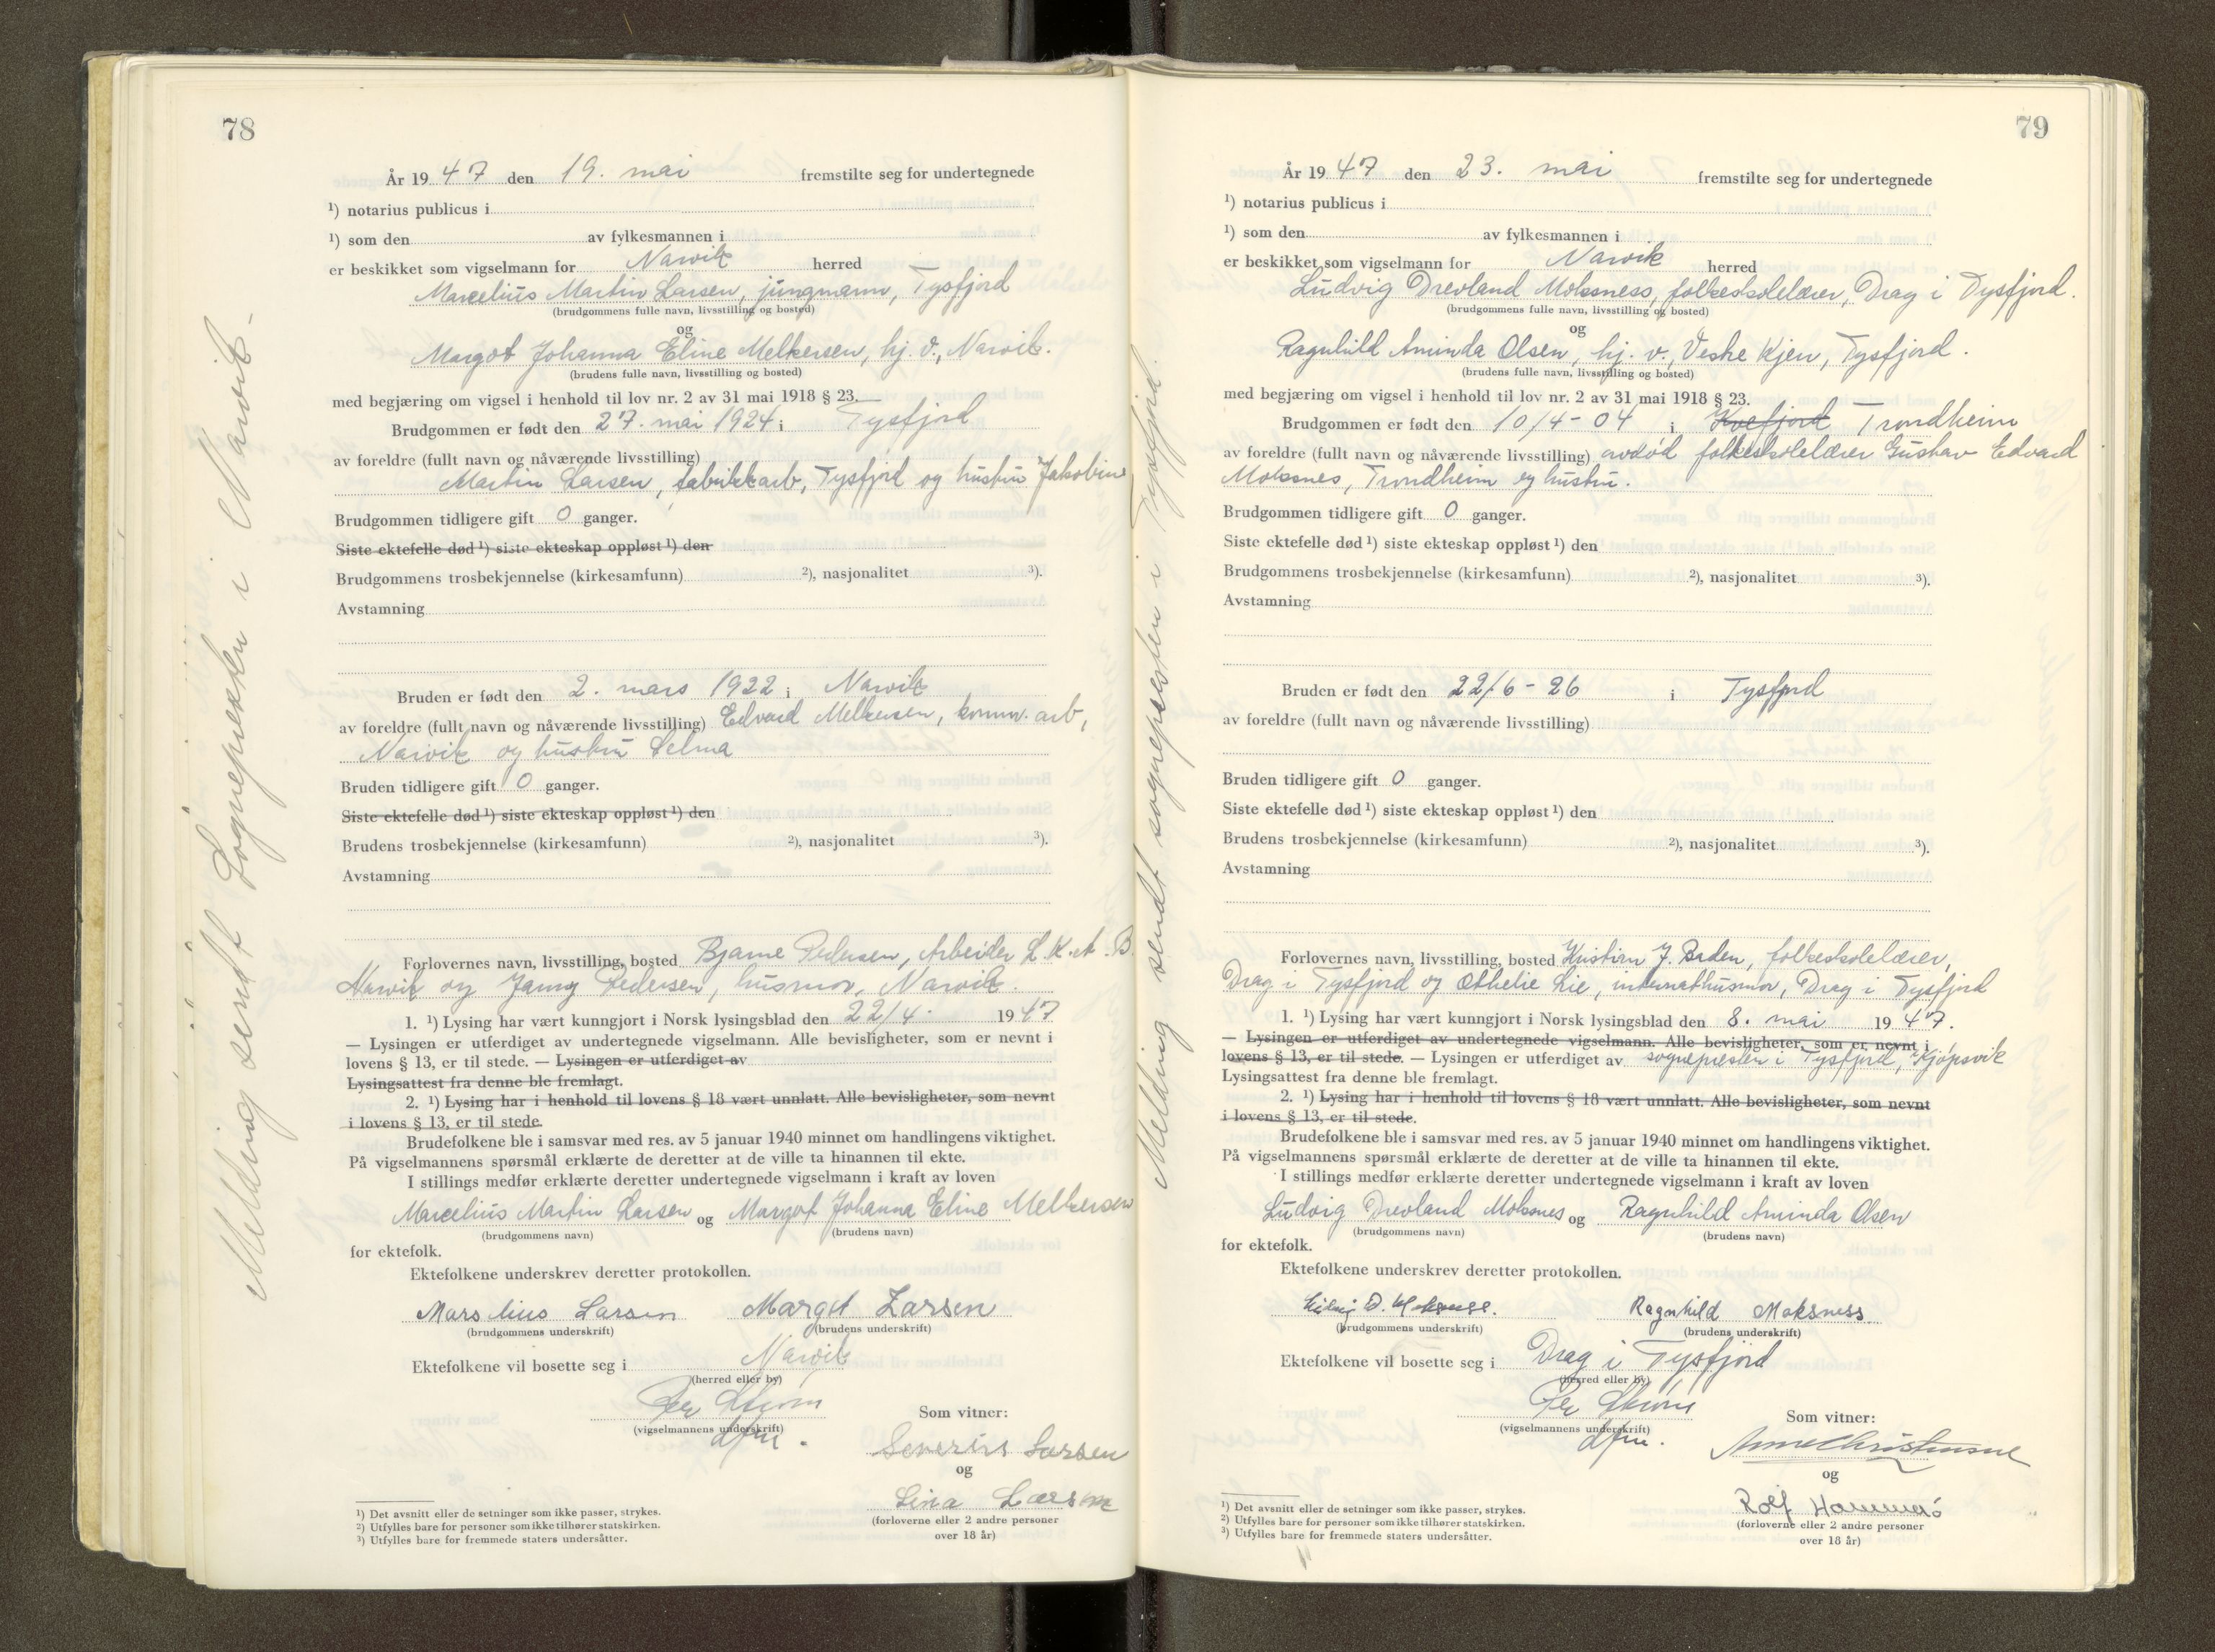 78
Melding sendt Sognepresten i Narvik
År 1947 den 19. mai fremstilte seg for undertegnede
¹) notarius publicus i
¹) som den av fylkesmannen i
er beskikket som vigselmann for Narvik herred
Marcelius Martin Larsen, jungmann, Tysfjord
(brudgommens fulle navn, livsstilling og bosted)
og
Margot Johanna Eline Melkersen, hj. v., Narvik.
(brudens fulle navn, livsstilling og bosted)
med begjæring om vigsel i henhold til lov nr. 2 av 31 mai 1918 § 23.
Brudgommen er født den 27. mai 1924 i Tysfjord
av foreldre (fullt navn og nåværende livsstilling)
Martin Larsen, fabrikkarb, Tysfjord og hustru Jakobine
Brudgommen tidligere gift 0 ganger.
Siste ektefelle død ¹) siste ekteskap oppløst ¹) den
Brudgommens trosbekjennelse (kirkesamfunn) ²), nasjonalitet ³).
Avstamning
Bruden er født den 2. mars 1922 i Narvik
av foreldre (fullt navn og nåværende livsstilling) Edvard Melkersen, komm. arb,
Narvik og hustru Selma
Bruden tidligere gift 0 ganger.
Siste ektefelle død ¹) siste ekteskap oppløst ¹) den
Brudens trosbekjennelse (kirkesamfunn) ²), nasjonalitet ³).
Avstamning
Forlovernes navn, livsstilling, bosted Bjarne Pedersen, Arbeider L.K.A.B
Narvik og Jenny Pedersen, husmor, Narvik.
1. ¹) Lysing har vært kunngjort i Norsk lysingsblad den 22/4. 1947
— Lysingen er utferdiget av undertegnede vigselmann. Alle bevisligheter, som er nevnt i
lovens § 13, er til stede. — Lysingen er utferdiget av
Lysingsattest fra denne ble fremlagt.
2. ¹) Lysing har i henhold til lovens § 18 vært unnlatt. Alle bevisligheter, som nevnt
i lovens § 13, er til stede.
Brudefolkene ble i samsvar med res. av 5 januar 1940 minnet om handlingens viktighet.
På vigselmannens spørsmål erklærte de deretter at de ville ta hinannen til ekte.
I stillings medfør erklærte deretter undertegnede vigselmann i kraft av loven
Marcelius Martin Larsen og Margot Johanna Eline Melkersen
(brudgommens navn) (brudens navn)
for ektefolk.
Ektefolkene underskrev deretter protokollen.
Marselius Larsen Margot Larsen
(brudgommens underskrift) (brudens underskrift)
Ektefolkene vil bosette seg i Narvik
(herred eller by)
Per Strøm
(vigselmannens underskrift)
dfm.
Som vitner:
Severin Larsen
og
Lina Larsen
(forloverne eller 2 andre personer
over 18 år)
¹) Det avsnitt eller de setninger som ikke passer, strykes.
²) Utfylles bare for personer som ikke tilhører statskirken.
³) Utfylles bare for fremmede staters undersåtter.
79
Melding sendt sognepresten i Tysfjord.
År 1947 den 23. mai fremstilte seg for undertegnede
¹) notarius publicus i
¹) som den av fylkesmannen i
er beskikket som vigselmann for Narvik herred
Ludvig Drevland Moksness, folkeskolelærer, Drag i Tysfjord.
(brudgommens fulle navn, livsstilling og bosted)
og
Ragnhild Aminda Olsen, hj. v., Vestre Kjen, Tysfjord.
(brudens fulle navn, livsstilling og bosted)
med begjæring om vigsel i henhold til lov nr. 2 av 31 mai 1918 § 23.
Brudgommen er født den 10/4-04 i Kvefjord Trondheim
av foreldre (fullt navn og nåværende livsstilling) avdød folkeskolelærer Gustav Edvard
Moksnes, Trondheim og hustru.
Brudgommen tidligere gift 0 ganger.
Siste ektefelle død ¹) siste ekteskap oppløst ¹) den
Brudgommens trosbekjennelse (kirkesamfunn) ²), nasjonalitet ³).
Avstamning
Bruden er født den 22/6-26 i Tysfjord
av foreldre (fullt navn og nåværende livsstilling)
Bruden tidligere gift 0 ganger.
Siste ektefelle død ¹) siste ekteskap oppløst ¹) den
Brudens trosbekjennelse (kirkesamfunn) ²), nasjonalitet ³).
Avstamning
Forlovernes navn, livsstilling, bosted Kristian J. folkeskolelærer,
Drag i Tysfjord og Othelie Lie, internathusmor, Drag i Tysfjord
1. ¹) Lysing har vært kunngjort i Norsk lysingsblad den 8. mai 1947.
— Lysingen er utferdiget av undertegnede vigselmann. Alle bevisligheter, som er nevnt i
lovens § 13, er til stede. — Lysingen er utferdiget av sognepresten i Tysfjord, Kjøpsvik
Lysingsattest fra denne ble fremlagt.
2. ¹) Lysing har i henhold til lovens § 18 vært unnlatt. Alle bevisligheter, som nevnt
i lovens § 13, er til stede.
Brudefolkene ble i samsvar med res. av 5 januar 1940 minnet om handlingens viktighet.
På vigselmannens spørsmål erklærte de deretter at de ville ta hinannen til ekte.
I stillings medfør erklærte deretter undertegnede vigselmann i kraft av loven
Ludvig Drevland Moksnes og Ragnhild Aminda Olsen
(brudgommens navn) (brudens navn)
for ektefolk.
Ektefolkene underskrev deretter protokollen.
Ludvig D. Moksness. Ragnhild Moksness
(brudgommens underskrift) (brudens underskrift)
Ektefolkene vil bosette seg i Drag i Tysfjord
(herred eller by)
Per Strøm
(vigselmannens underskrift)
dfm.
Som vitner:
Anne Christensen
og
Rolf Hammerö
(forloverne eller 2 andre personer
over 18 år)
¹) Det avsnitt eller de setninger som ikke passer, strykes.
²) Utfylles bare for personer som ikke tilhører statskirken.
³) Utfylles bare for fremmede staters undersåtter.